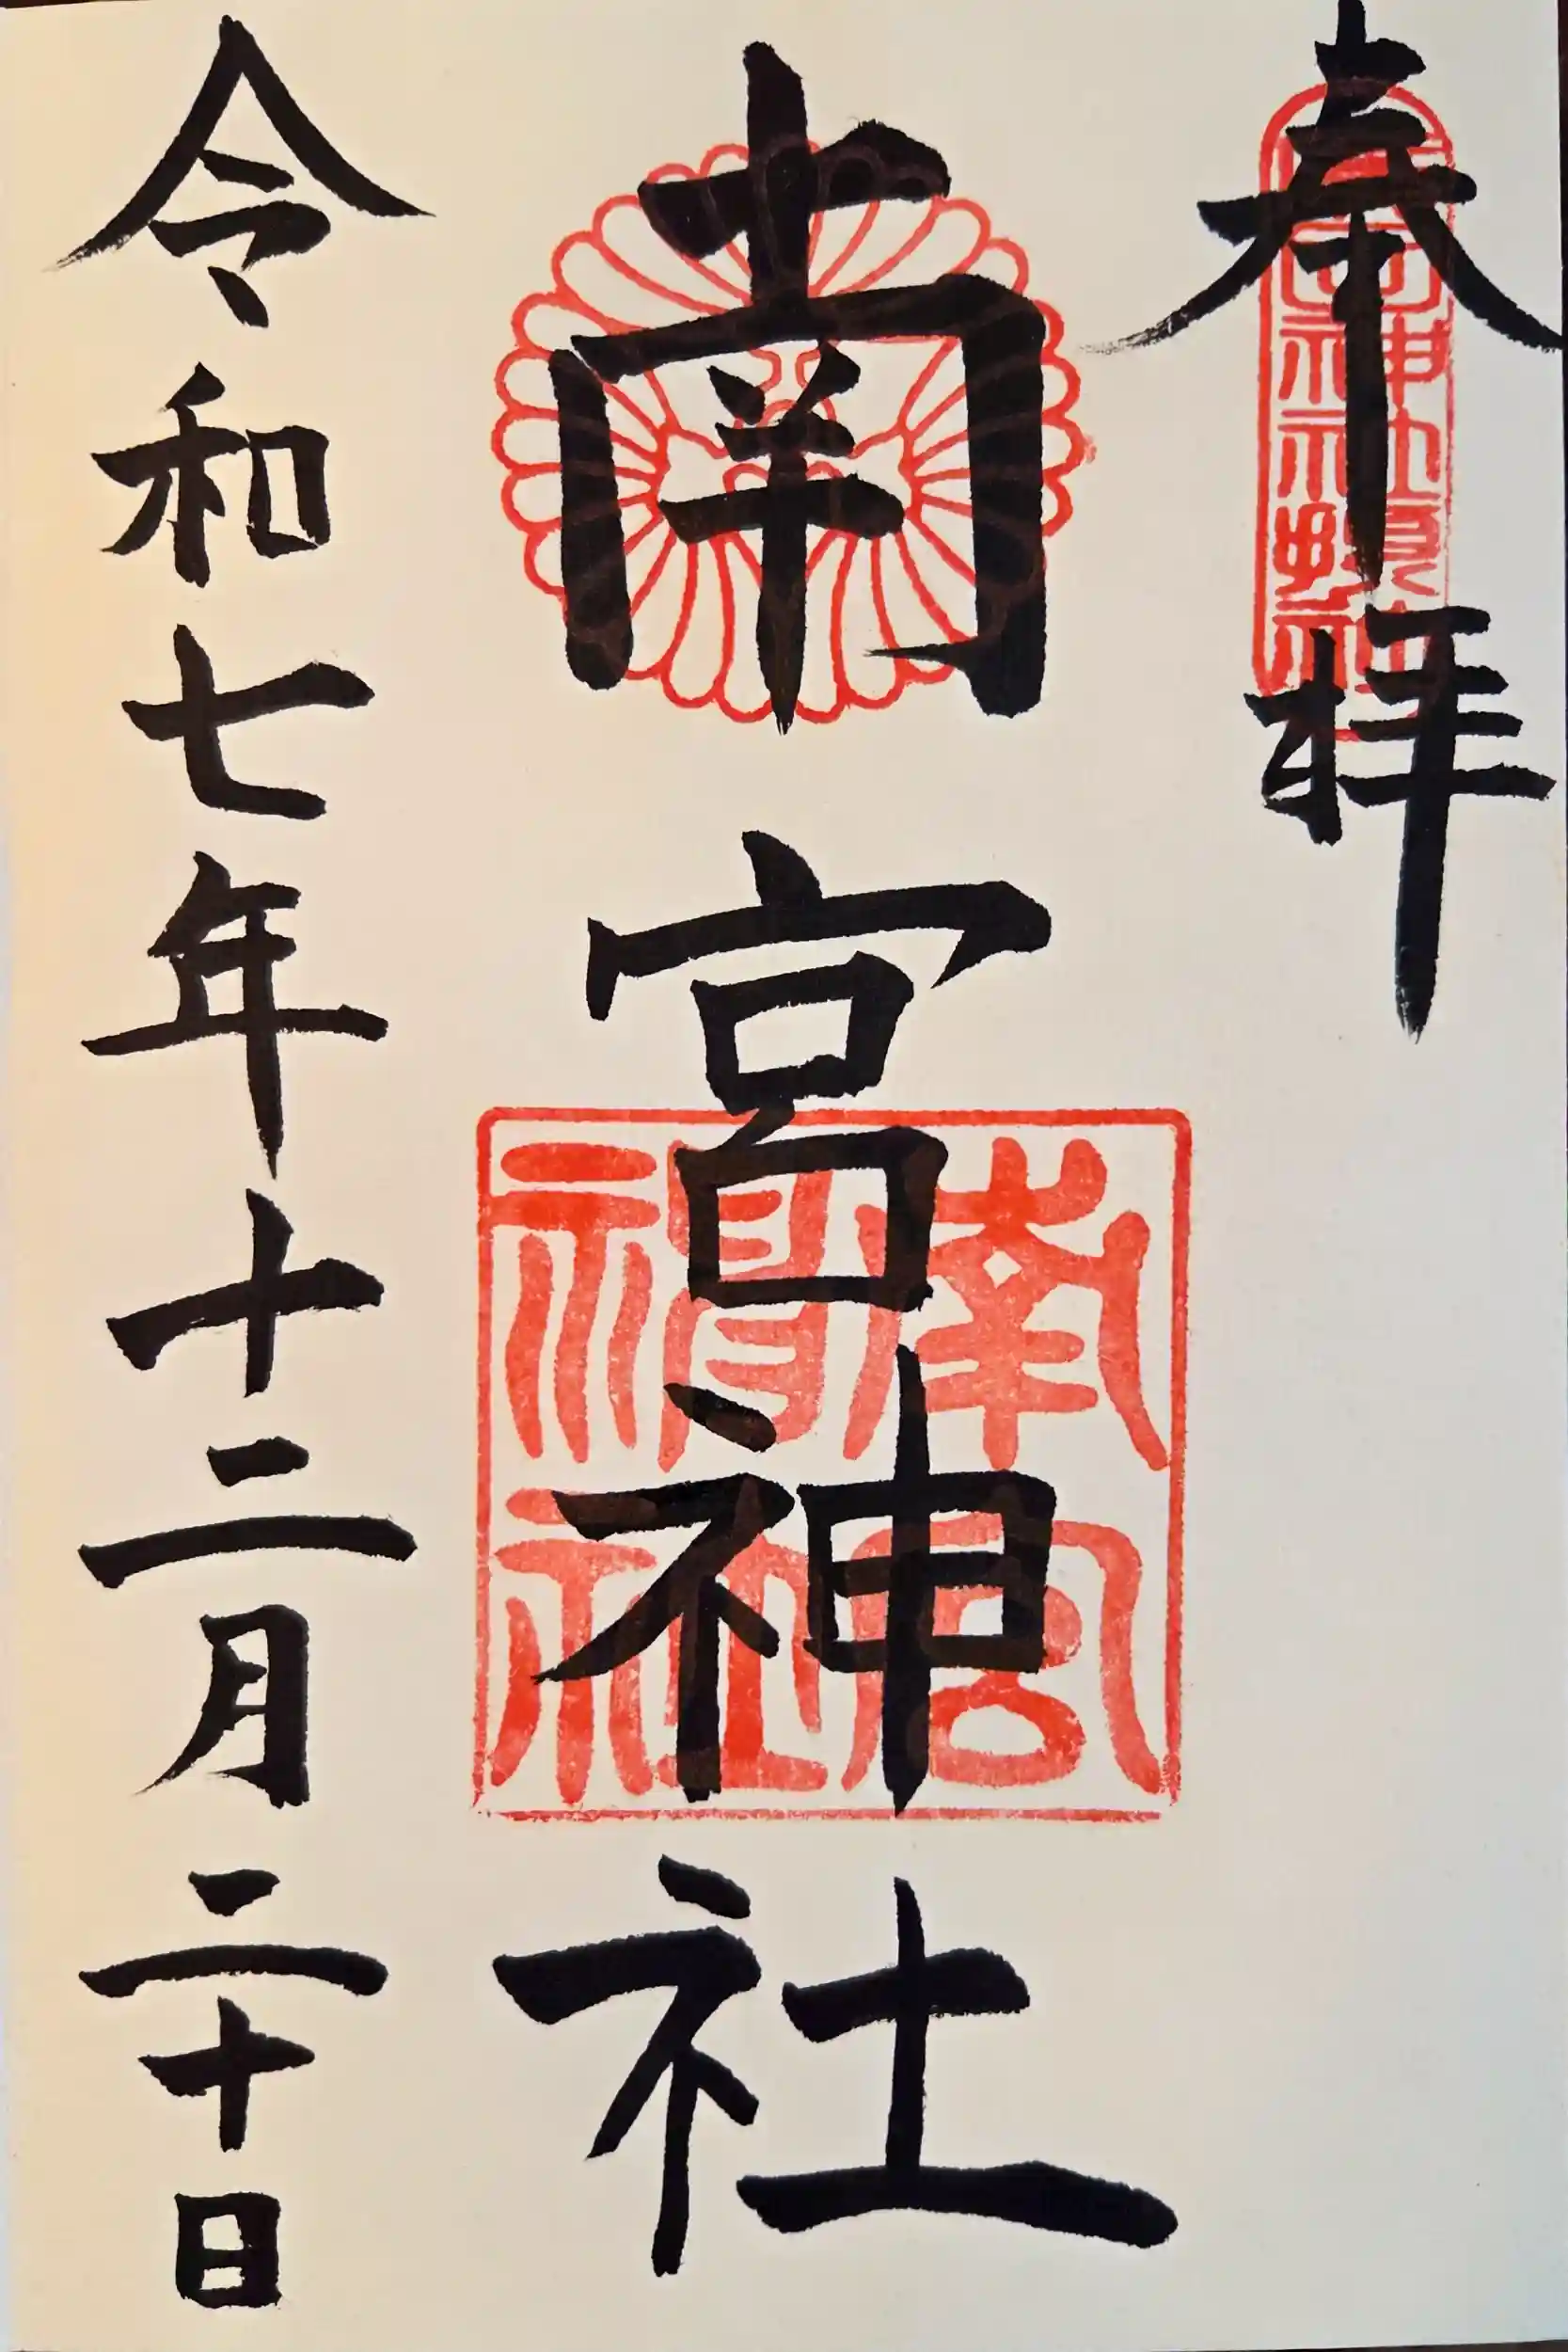 奉拝
南宮神社
南宮神社
令和七年十二月二十日